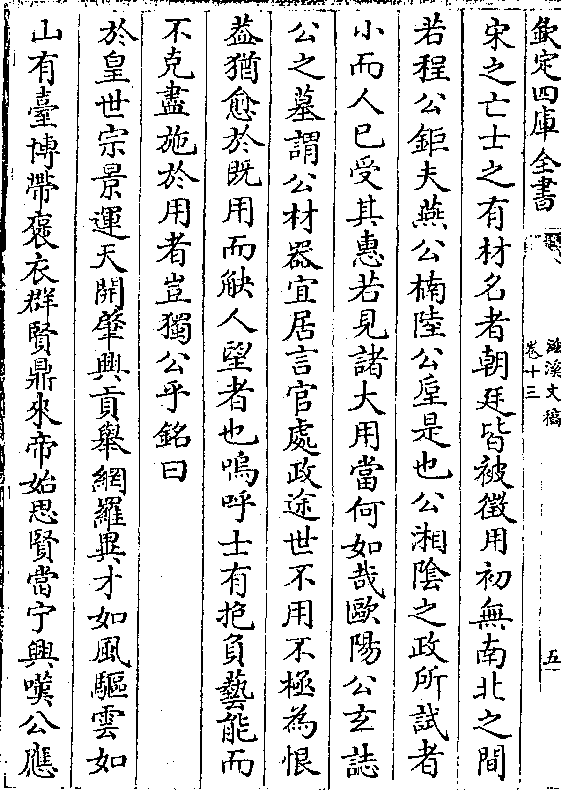 欽定四庫全書
灊溪文稿
卷十三
五
宋之亡士之有材名者朝廷皆被徵用初無南北之間
若程公鉅夫燕公楠陸公垕是也公湘陰之政所試者
小而人已受其惠若見諸大用當何如哉歐陽公玄誌
公之墓謂公材器宜居言官處政途世不用不極為恨
葢猶愈於既用而觖人望者也嗚呼士有抱負藝能而
不克盡施於用者豈獨公乎銘曰
於皇世宗景運天開肇興貢舉網羅異才如風驅雲如
山有臺博帶褒衣群賢鼎來帝始思賢當宁興嘆公應